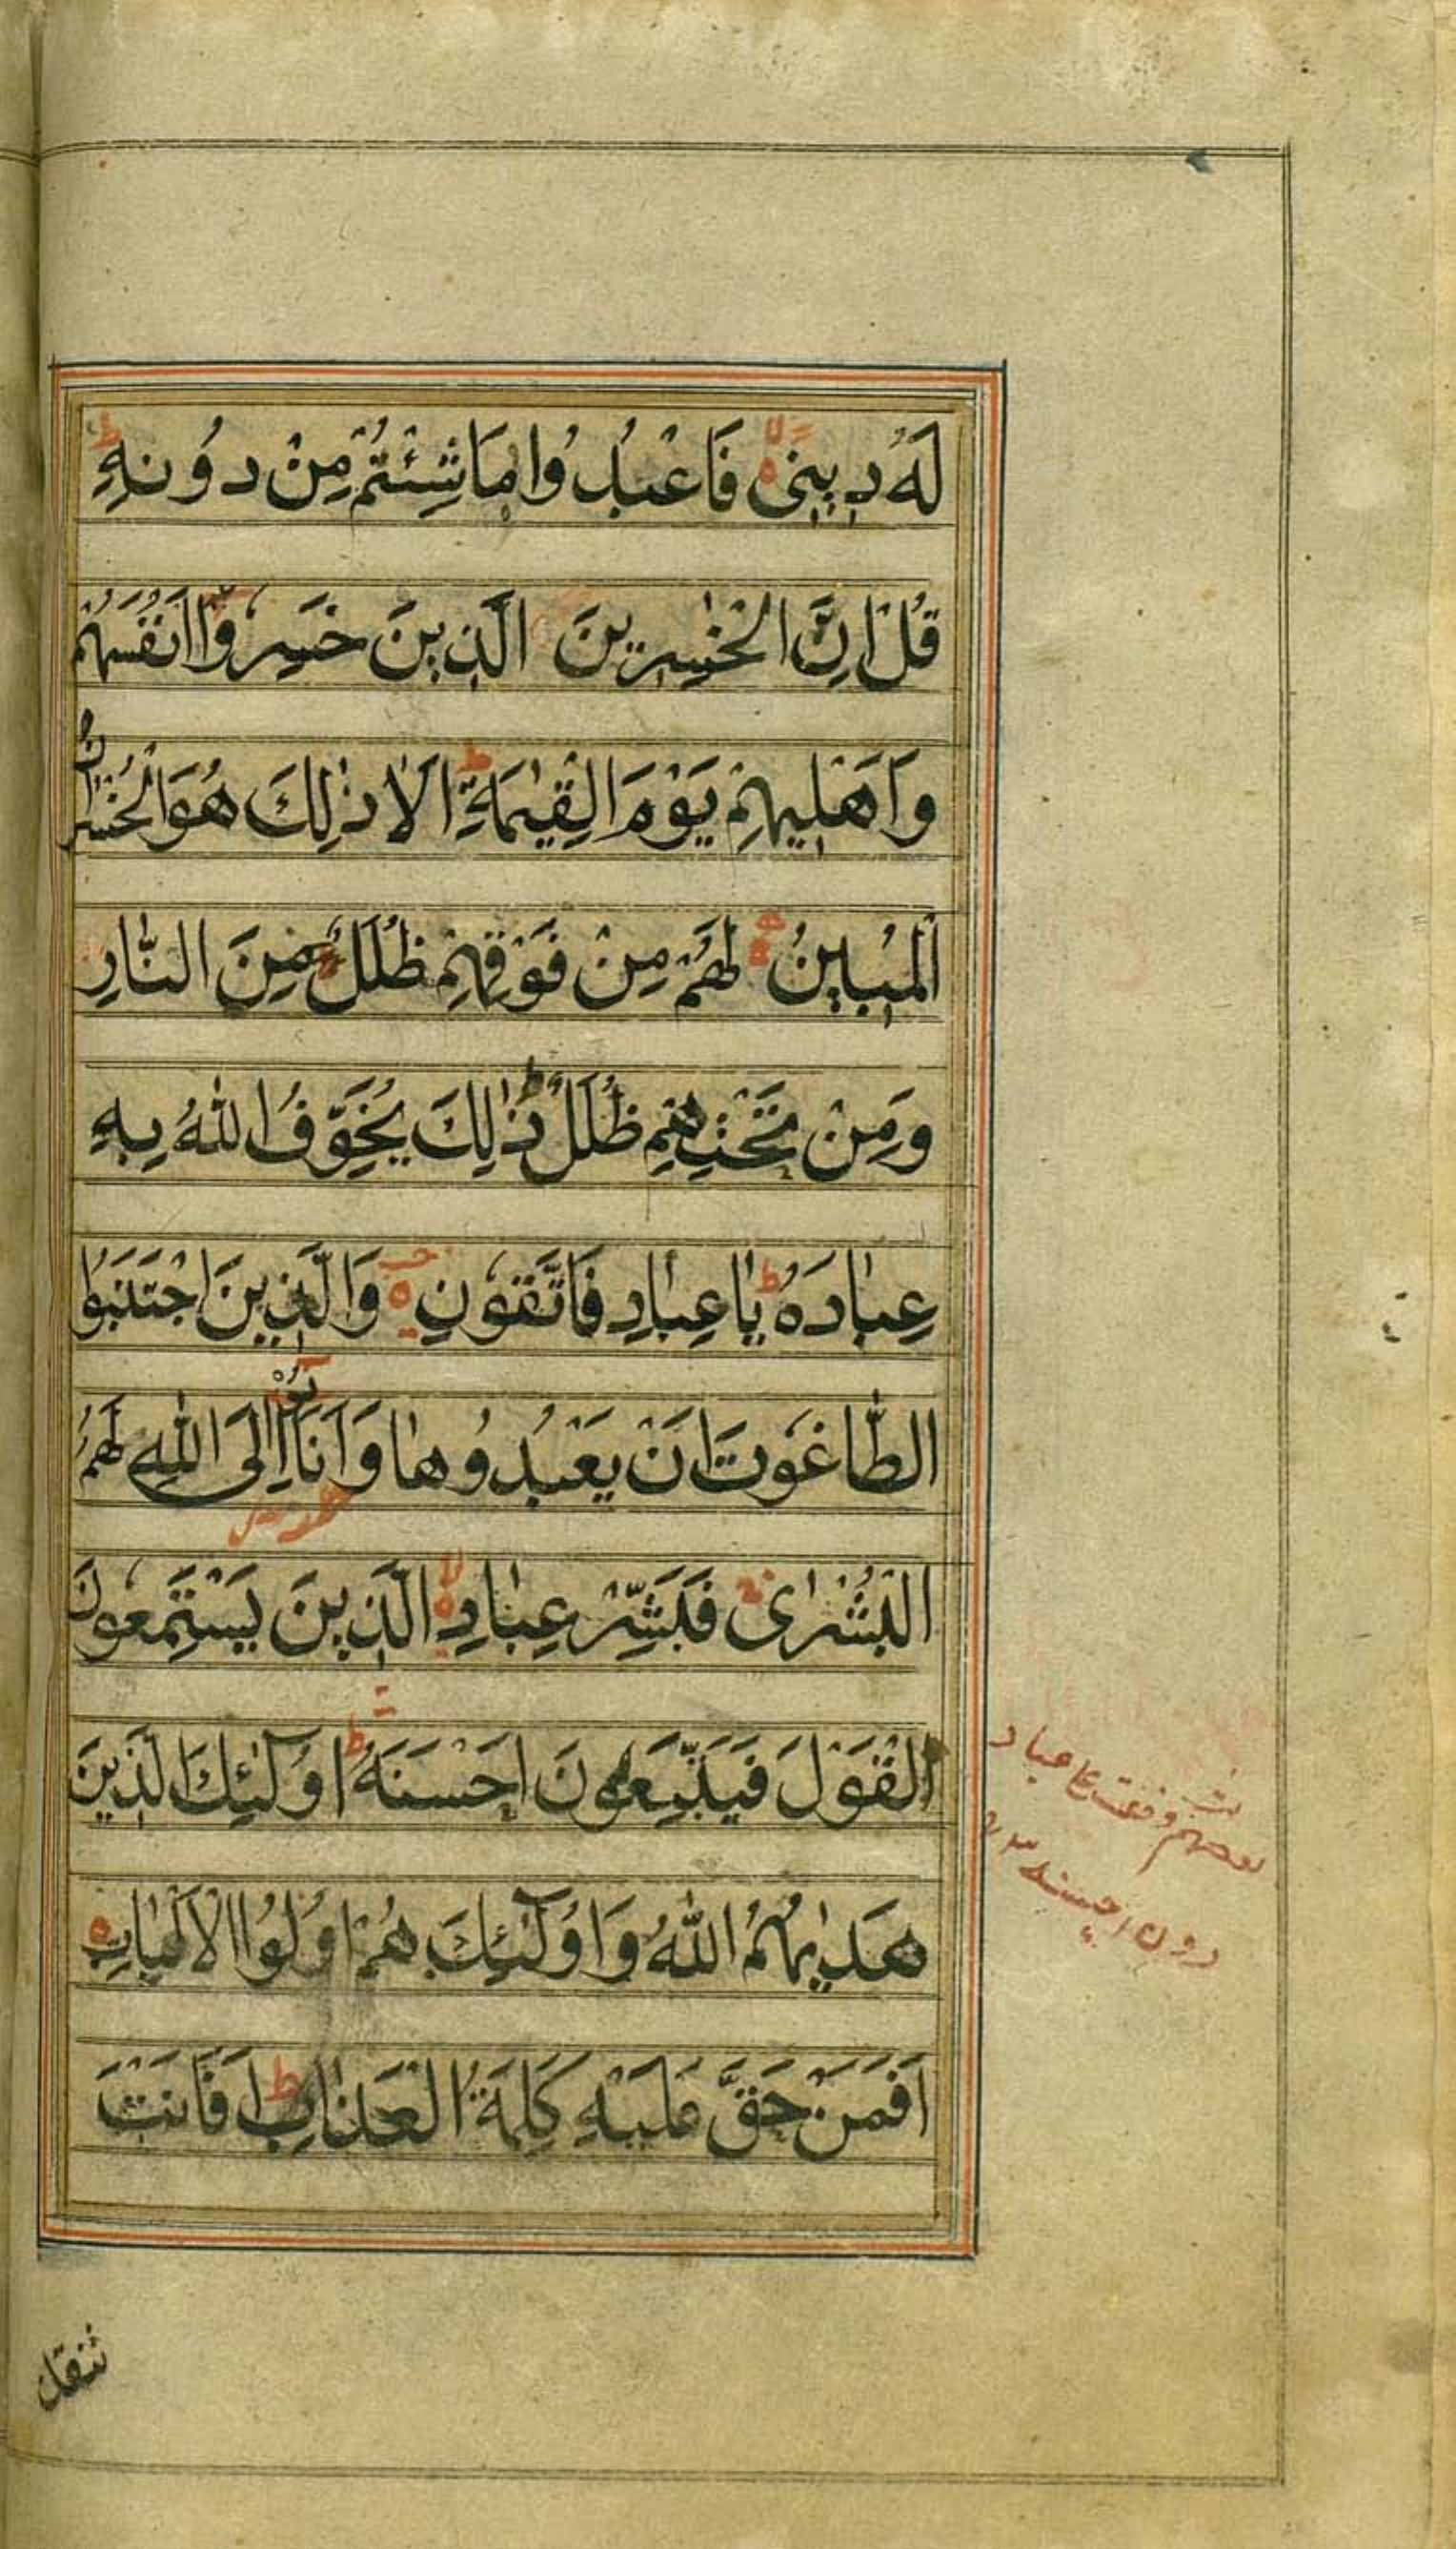 لَهُ دِينِى فَاعْبُدُوا مَا شِئْتُمْ مِنْ دُونِهِ ط
قُلْ اِنَّ الْخٰسِرِينَ الَّذِينَ خَسِرُوا اَنْفُسَهُمْ
وَاَهْلِيهِمْ يَوْمَ الْقِيٰمَةِ ط اَلَا ذٰلِكَ هُوَ الْخُسْرَانُ
الْمُبِينُ لَهُمْ مِنْ فَوْقِهِمْ ظُلَلٌ مِنَ النَّارِ
وَمِنْ تَحْتِهِمْ ظُلَلٌ ط ذٰلِكَ يُخَوِّفُ اللّٰهُ بِهِ
عِبٰادَهُ ط يٰا عِبٰادِ فَاتَّقُونِ وَالَّذِينَ اجْتَنَبُوا
الطّٰاغُوتَ اَنْ يَعْبُدُوهٰا وَاَنَابُوْا اِلَى اللّٰهِ لَهُمُ
الْبُشْرٰى فَبَشِّرْ عِبٰادِ لا الَّذِينَ يَسْتَمِعُونَ
الْقَوْلَ فَيَتَّبِعُونَ اَحْسَنَهُ ط اُولٰٓئِكَ الَّذِينَ
هَدٰيهُمُ اللّٰهُ وَاُولٰٓئِكَ هُمْ اُولُوا الْاَلْبٰابِ
اَفَمَنْ حَقَّ عَلَيْهِ كَلِمَةُ الْعَذٰابِ ط اَفَاَنْتَ
تنقذ